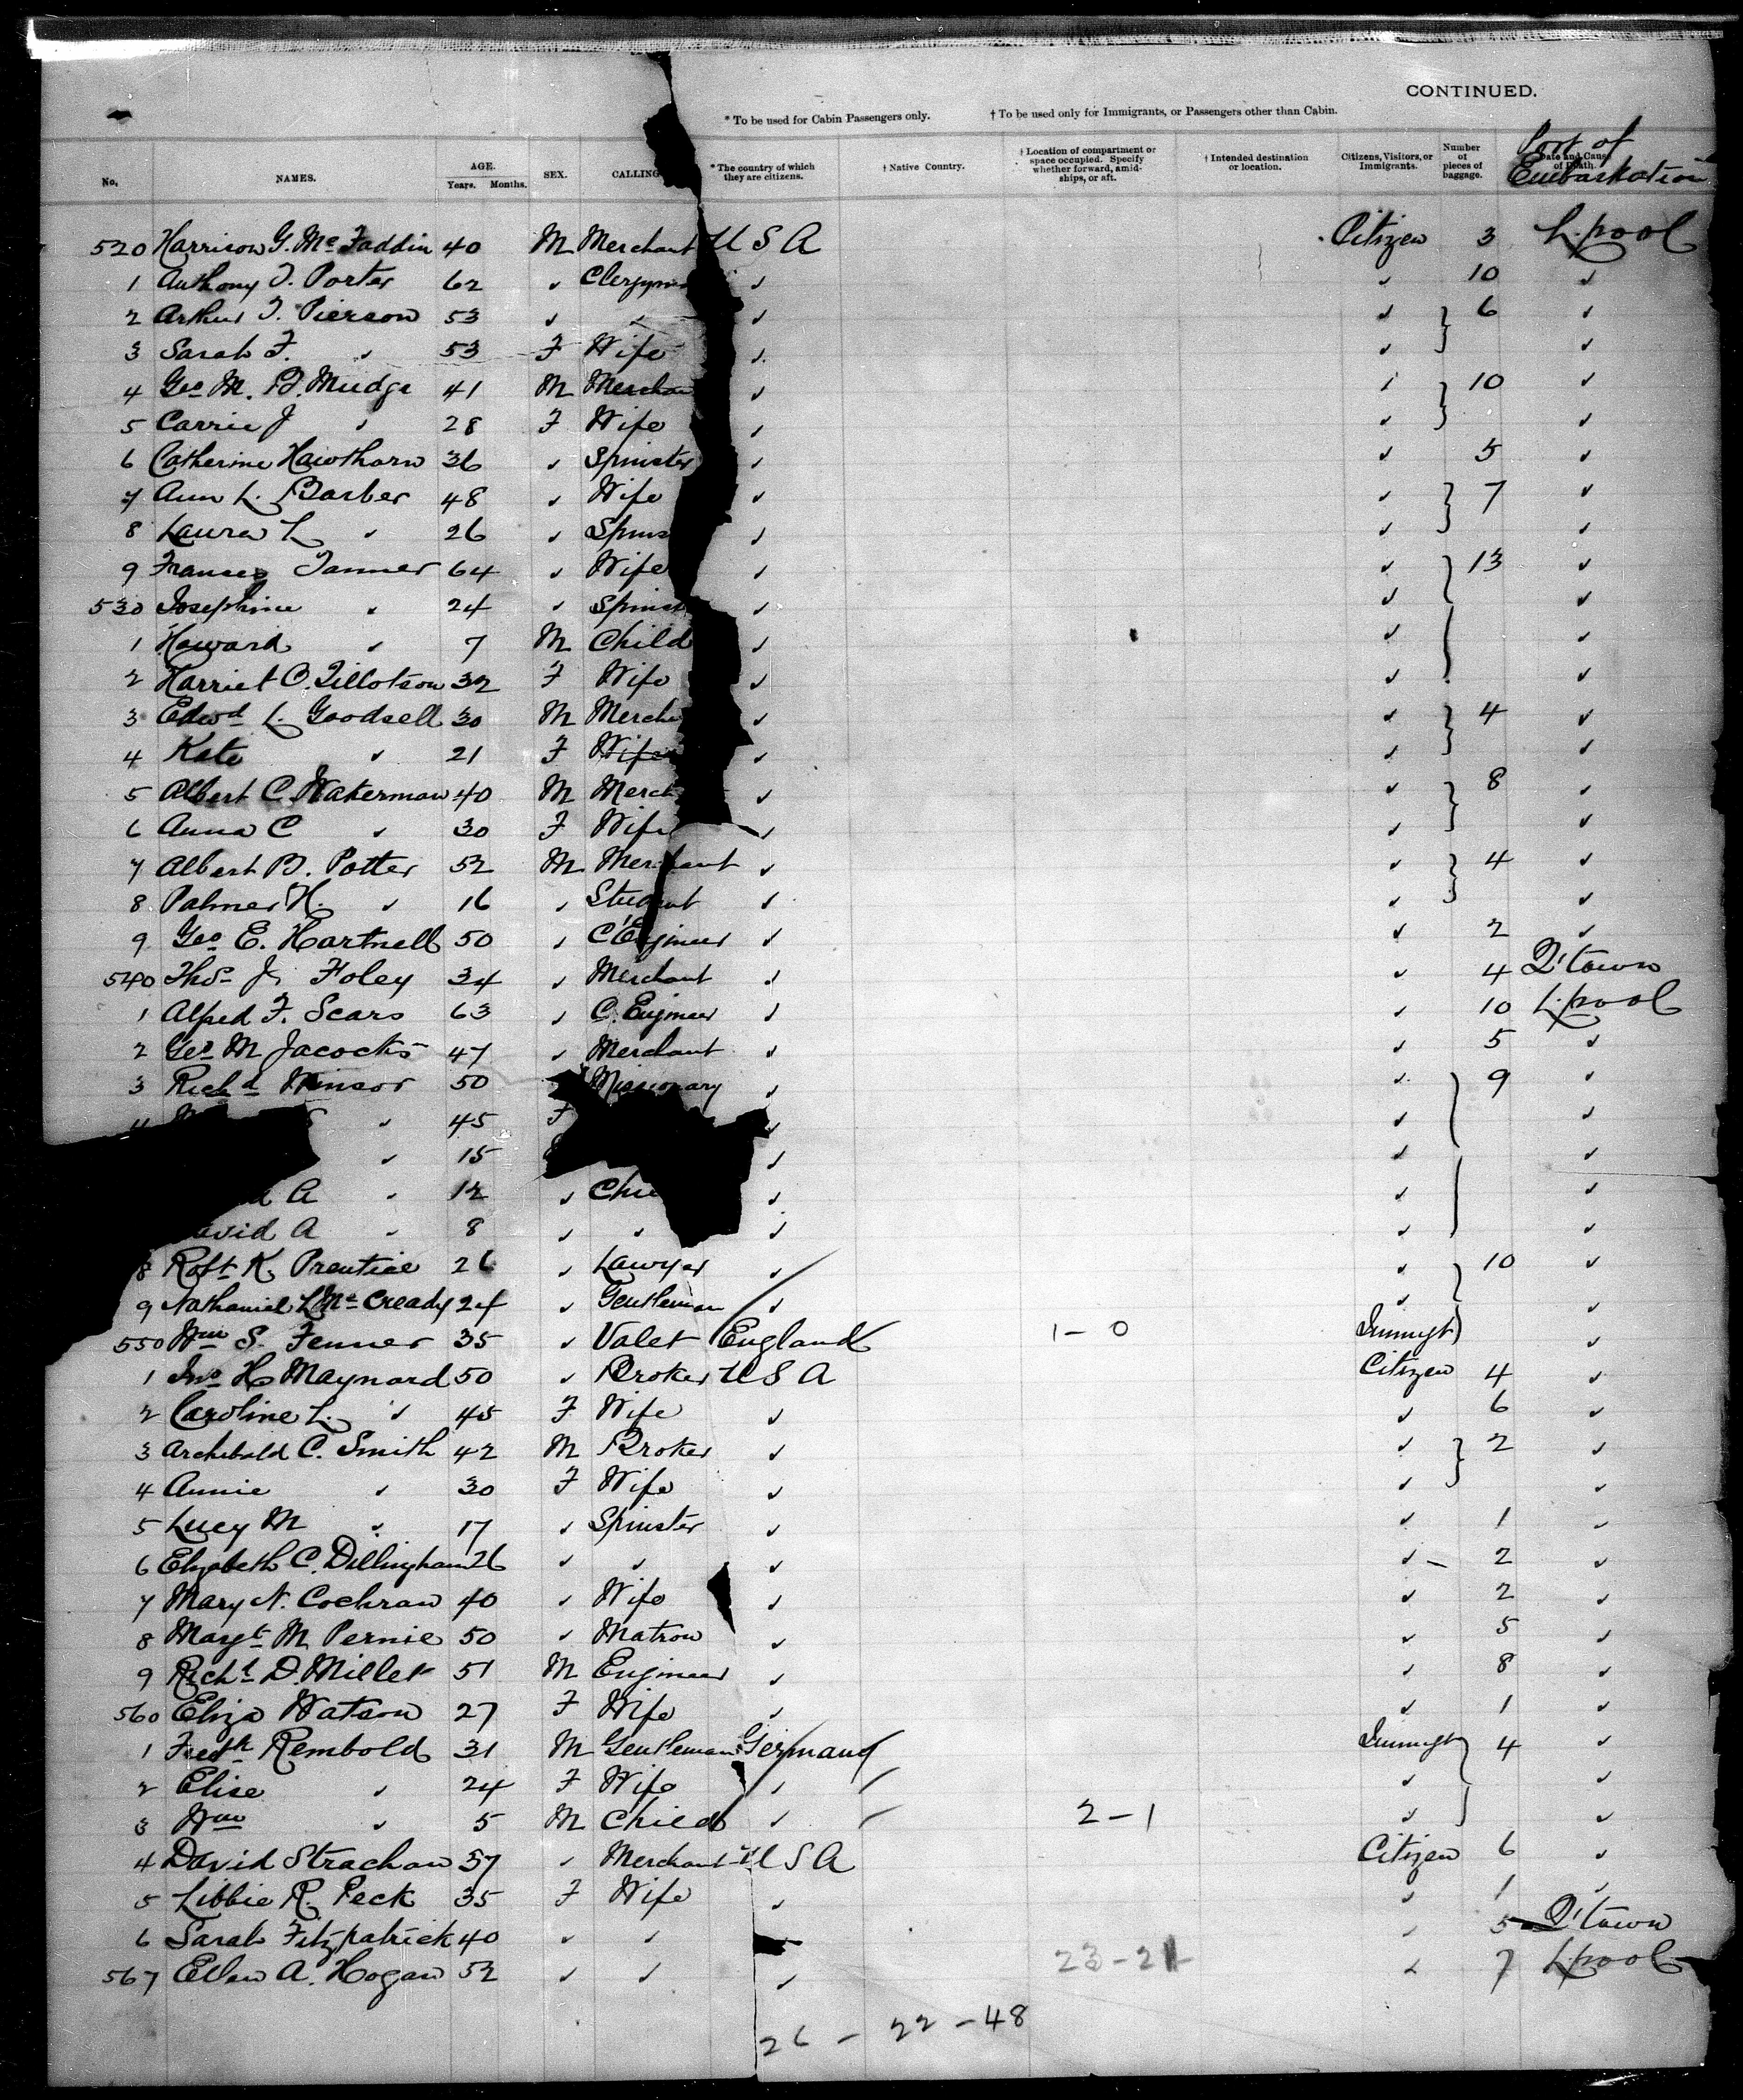 CONTINUED.
* To be used for Cabin Passengers only. † To be used only for Immigrants, or Passengers other than Cabin.
No. NAMES. AGE. Years. Months. SEX. CALLING * The country of which they are citizens. † Native Country. † Location of compartment or space occupied. Specify whether forward, amidships, or aft. † Intended destination or location. Citizens, Visitors, or Immigrants. Number of pieces of baggage. Date and Cause of Death. Port of Embarkation
520 Harrison G. Mc Faddin 40 M Merchant U S A Citizen 3 L.pool
1 Anthony T. Porter 62 " Clergym " " 10 "
2 Arthur T. Pierson 53 " " " " 6 "
3 Sarah F. " 53 F Wife " " "
4 Geo M. B. Mudge 41 M Merchan " " 10 "
5 Carrie J " 28 F Wife " " "
6 Catherine Hawthorn 36 " Spinster " " 5 "
7 Ann L. Barber 48 " Wife " " 7 "
8 Laura L " 26 " Spins " " "
9 Frances Tanner 64 " Wife " " 13 "
530 Josephine " 24 " Spinst " " "
1 Howard " 7 M Child " " "
2 Harriet O. Tillotson 32 F Wife " " "
3 Edwd L. Goodsell 30 M Mercha " " 4 "
4 Kate " 21 F Wife " " "
5 Albert C. Wakerman 40 M Merch " " 8 "
6 Anna C " 30 F Wife " " "
7 Albert B. Potter 52 M Merchant " " 4 "
8 Palmer H. " 16 " Student " " "
9 Geo E. Hartnell 50 " C Engineer " " 2 "
540 Thos J. Foley 34 " Merchant " " 4 Q'town
1 Alfred F. Sears 63 " C. Engineer " " 10 L.pool
2 Geo M Jacocks 47 " Merchant " " 5 "
3 Richd Winsor 50 Missionary " " 9 "
" 45 F " " "
" 15 " " "
A " 12 " Chi " " "
avid A " 8 " " " " "
8 Robt K. Prentice 26 " Lawyer " " 10 "
9 Nathaniel L Mc Cready 24 " Gentleman " " "
550 Wm S. Fenner 35 " Valet England 1 - 0 Immigt "
1 Jno H Maynard 50 " Broker U S A Citizen 4 "
2 Caroline L. " 45 F Wife " " 6 "
3 Archibald C. Smith 42 M Broker " " 2 "
4 Annie " 30 F Wife " " "
5 Lucy M " 17 " Spinster " " 1 "
6 Elizabeth C. Dillingham 26 " " " " 2 "
7 Mary N. Cochran 40 " Wife " " 2 "
8 Margt M Pernie 50 " Matron " " 5 "
9 Richd D. Miller 51 M Engineer " " 8 "
560 Eliza Watson 27 F Wife " " 1 "
1 Fredk Rembold 31 M Gentleman Germany Immigt 4 "
2 Elise " 24 F Wife " " "
3 Wm " 5 M Child " 2 - 1 " "
4 David Strachan 57 " Merchant U S A Citizen 6 "
5 Libbie R. Peck 35 F Wife " " 1 "
6 Sarah Fitzpatrick 40 " " " 5 Q'town
567 Ellen A. Hogan 52 " " " 23 - 21 " 7 L.pool
26 - 22 - 48